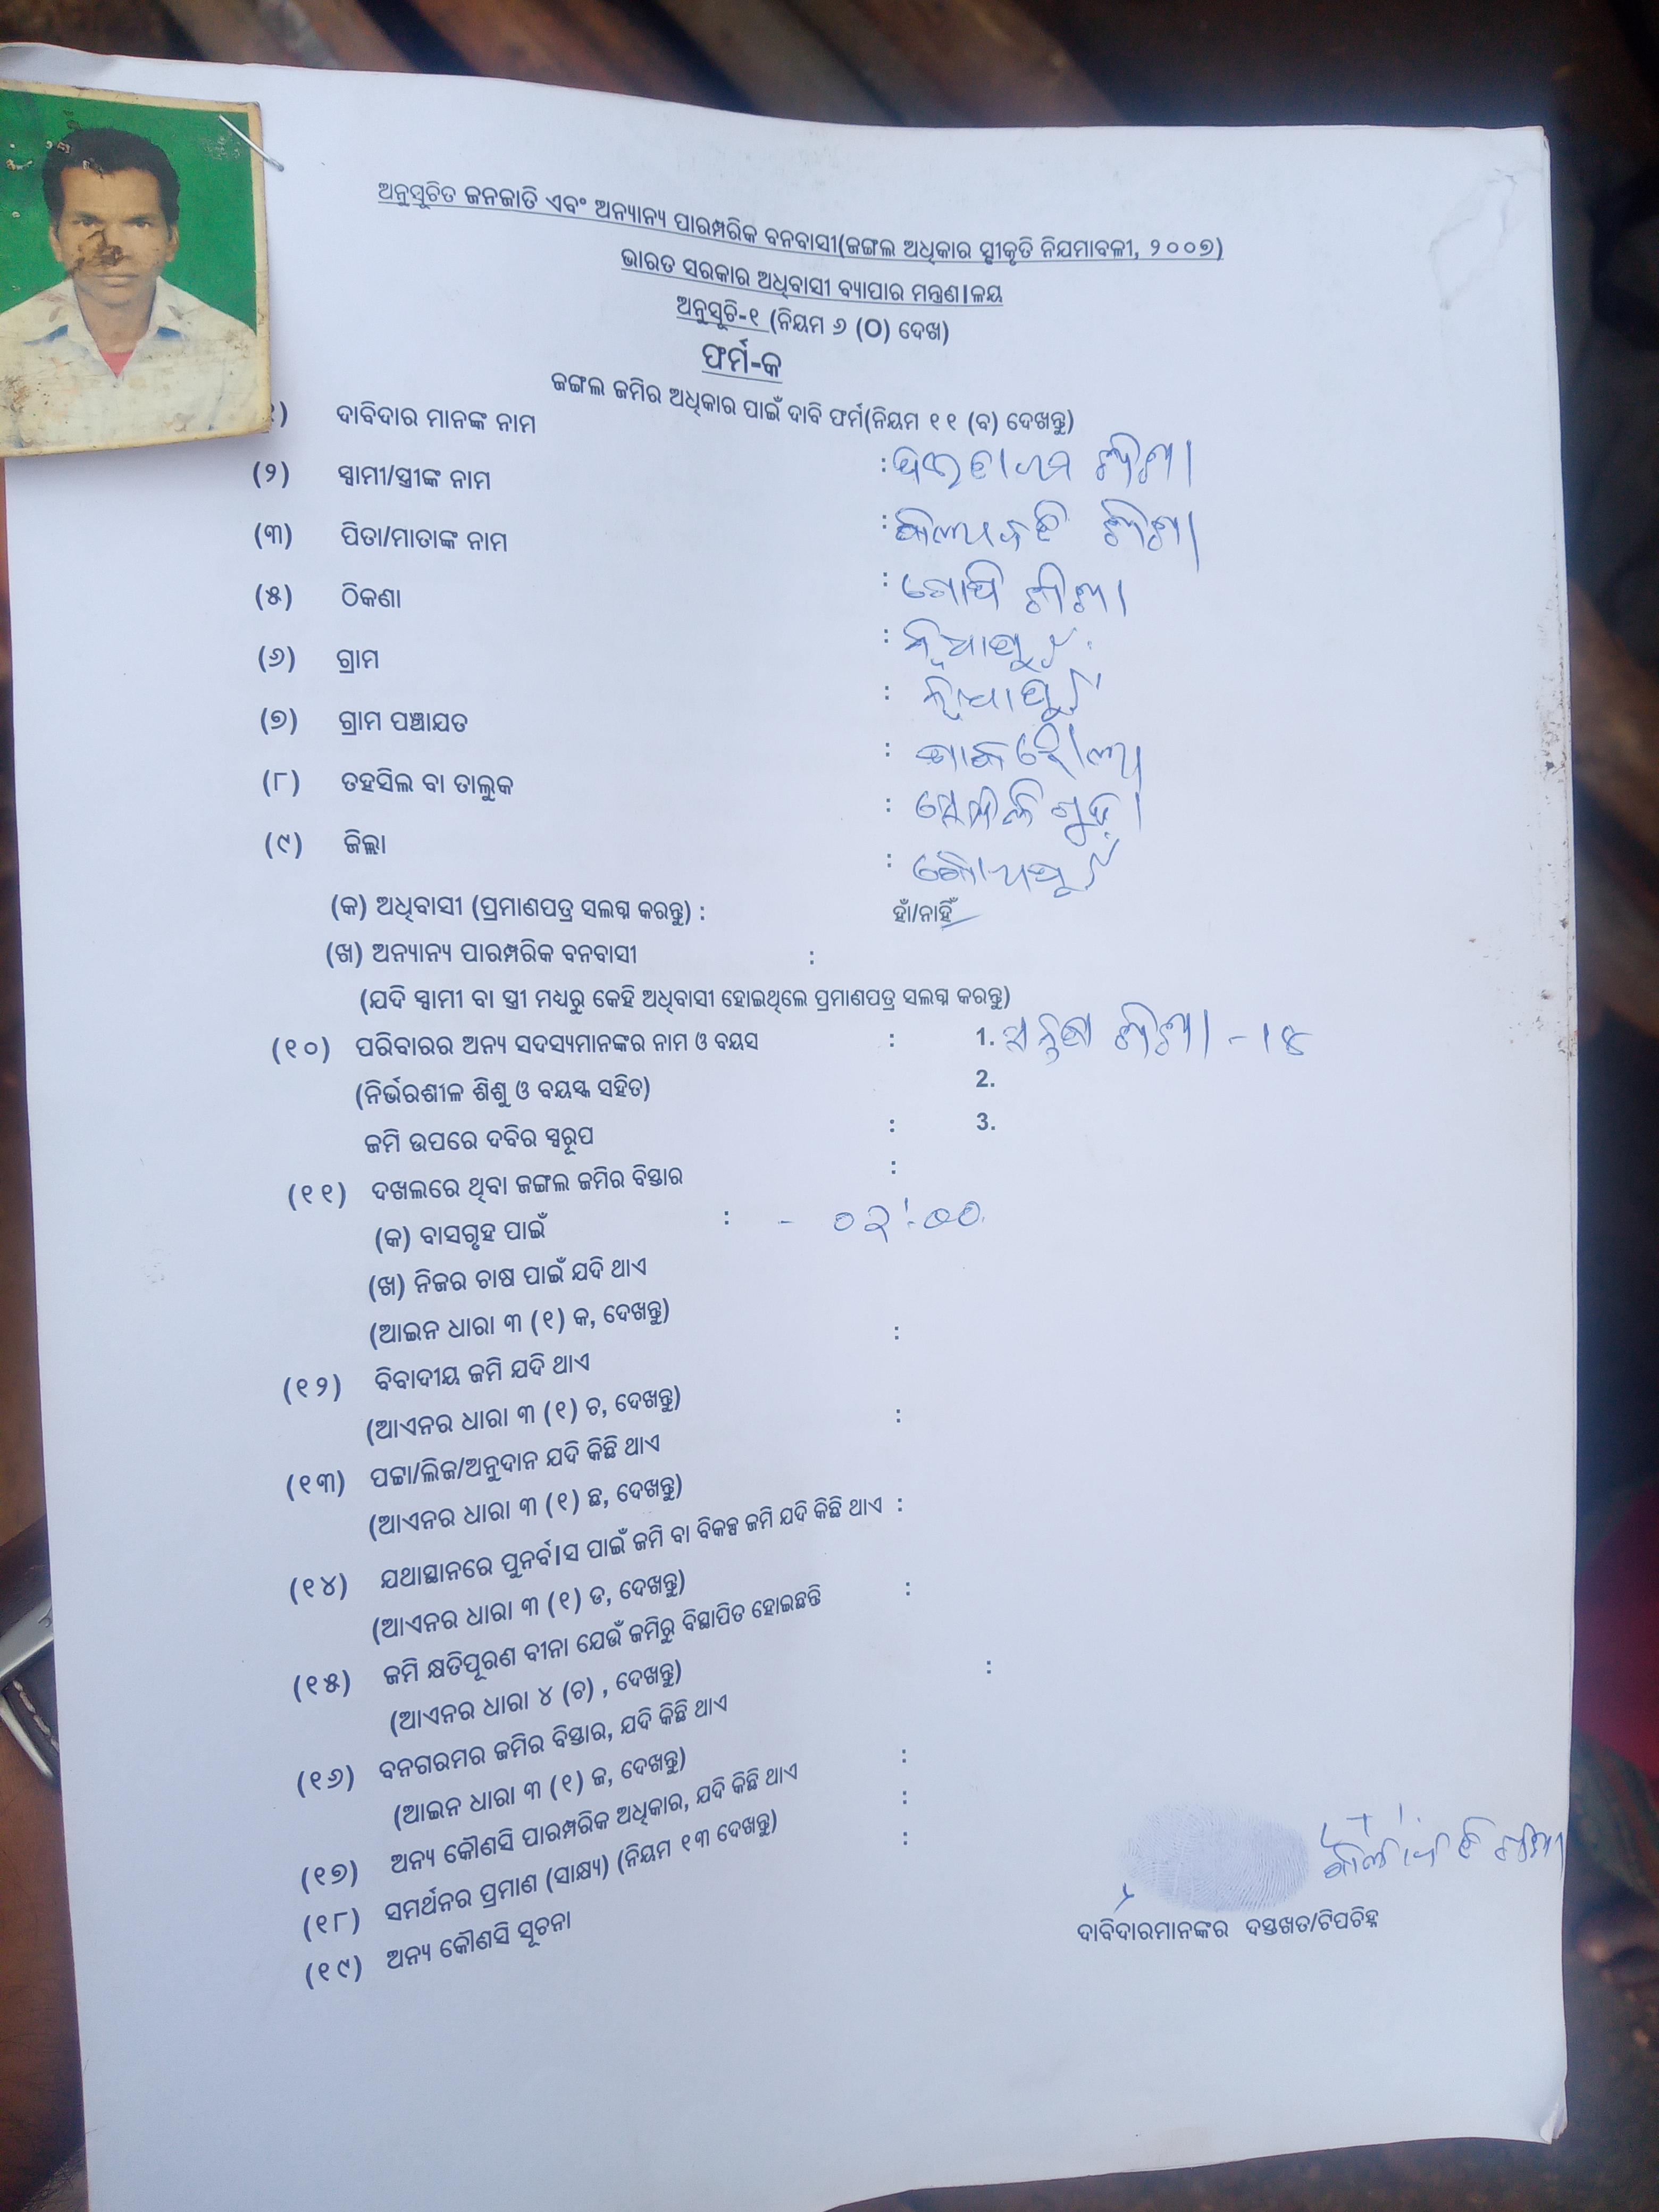 ଅନୁସୂଚିତ ଜନଜାତି ଏବଂ ଅନ୍ୟାନ୍ୟ ପାରମ୍ପରିକ ବନବାସୀ(ଜଙ୍ଗଲ ଅଧିକାର ସ୍ୱୀକୃତି ନିଯମାବଳୀ, ୨୦୦୭)
ଭାରତ ସରକାର ଅଧିବାସୀ ବ୍ୟାପାର ମନ୍ତ୍ରଣାଳୟ
ଅନୁସୂଚି-୧ (ନିୟମ ୬ (O) ଦେଖ)
ଫର୍ମ-କ
ଜଙ୍ଗଲ ଜମିର ଅଧିକାର ପାଇଁ ଦାବି ଫର୍ମ(ନିୟମ ୧୧ (ବ) ଦେଖନ୍ତୁ)
) ଦାବିଦାର ମାନଙ୍କ ନାମ :
(୨) ସ୍ୱାମୀ/ସ୍ତ୍ରୀଙ୍କ ନାମ :
(୩) ପିତା/ମାତାଙ୍କ ନାମ : ଗୋପି
(୫) ଠିକଣା :
(୬) ଗ୍ରାମ :
(୭) ଗ୍ରାମ ପଞ୍ଚାଯତ :
(୮) ତହସିଲ ବା ତାଲୁକ :
(୯) ଜିଲ୍ଲା : କୋରାପୁଟ
(କ) ଅଧିବାସୀ (ପ୍ରମାଣପତ୍ର ସଲଗ୍ନ କରନ୍ତୁ) : ହାଁ/ନାହିଁ
(ଖ) ଅନ୍ୟାନ୍ୟ ପାରମ୍ପରିକ ବନବାସୀ :
(ଯଦି ସ୍ୱାମୀ ବା ସ୍ତ୍ରୀ ମଧ୍ୟରୁ କେହି ଅଧିବାସୀ ହୋଇଥିଲେ ପ୍ରମାଣପତ୍ର ସଲଗ୍ନ କରନ୍ତୁ)
(୧୦) ପରିବାରର ଅନ୍ୟ ସଦସ୍ୟମାନଙ୍କର ନାମ ଓ ବୟସ : 1.
(ନିର୍ଭରଶୀଳ ଶିଶୁ ଓ ବୟସ୍କ ସହିତ) 2.
ଜମି ଉପରେ ଦବିର ସ୍ୱରୂପ : 3.
(୧୧) ଦଖଲରେ ଥିବା ଜଙ୍ଗଲ ଜମିର ବିସ୍ତାର :
(କ) ବାସଗୃହ ପାଇଁ : - ୦୨.୦୦
(ଖ) ନିଜର ଚାଷ ପାଇଁ ଯଦି ଥାଏ
(ଆଇନ ଧାରା ୩ (୧) କ, ଦେଖନ୍ତୁ)
(୧୨) ବିବାଦୀୟ ଜମି ଯଦି ଥାଏ :
(ଆଏନର ଧାରା ୩ (୧) ଚ, ଦେଖନ୍ତୁ)
(୧୩) ପଟ୍ଟା/ଲିଜ/ଅନୁଦାନ ଯଦି କିଛି ଥାଏ :
(ଆଏନର ଧାରା ୩ (୧) ଛ, ଦେଖନ୍ତୁ)
(୧୪) ଯଥାସ୍ଥାନରେ ପୁନର୍ବାସ ପାଇଁ ଜମି ବା ବିକଳ୍ପ ଜମି ଯଦି କିଛି ଥାଏ :
(ଆଏନର ଧାରା ୩ (୧) ଡ, ଦେଖନ୍ତୁ)
(୧୫) ଜମି କ୍ଷତିପୂରଣ ବୀନା ଯେଉଁ ଜମିରୁ ବିସ୍ଥାପିତ ହୋଇଛନ୍ତି :
(ଆଏନର ଧାରା ୪ (ଚ) , ଦେଖନ୍ତୁ)
(୧୬) ବନଗରମର ଜମିର ବିସ୍ତାର, ଯଦି କିଛି ଥାଏ :
(ଆଇନ ଧାରା ୩ (୧) ଜ, ଦେଖନ୍ତୁ)
(୧୭) ଅନ୍ୟ କୌଣସି ପାରମ୍ପରିକ ଅଧିକାର, ଯଦି କିଛି ଥାଏ :
(୧୮) ସମର୍ଥନର ପ୍ରମାଣ (ସାକ୍ଷ୍ୟ) (ନିୟମ ୧୩ ଦେଖନ୍ତୁ) :
(୧୯) ଅନ୍ୟ କୌଣସି ସୂଚନା :
ଦାବିଦାରମାନଙ୍କର ଦସ୍ତଖତ/ଟିପଚିହ୍ନ